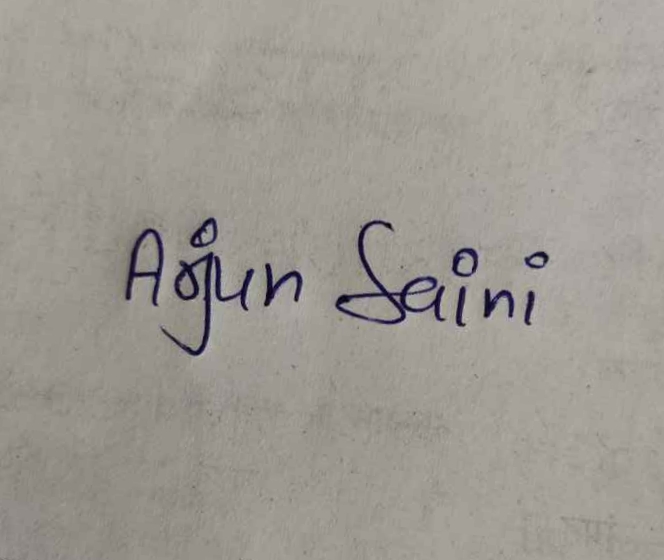 Arjun Saini